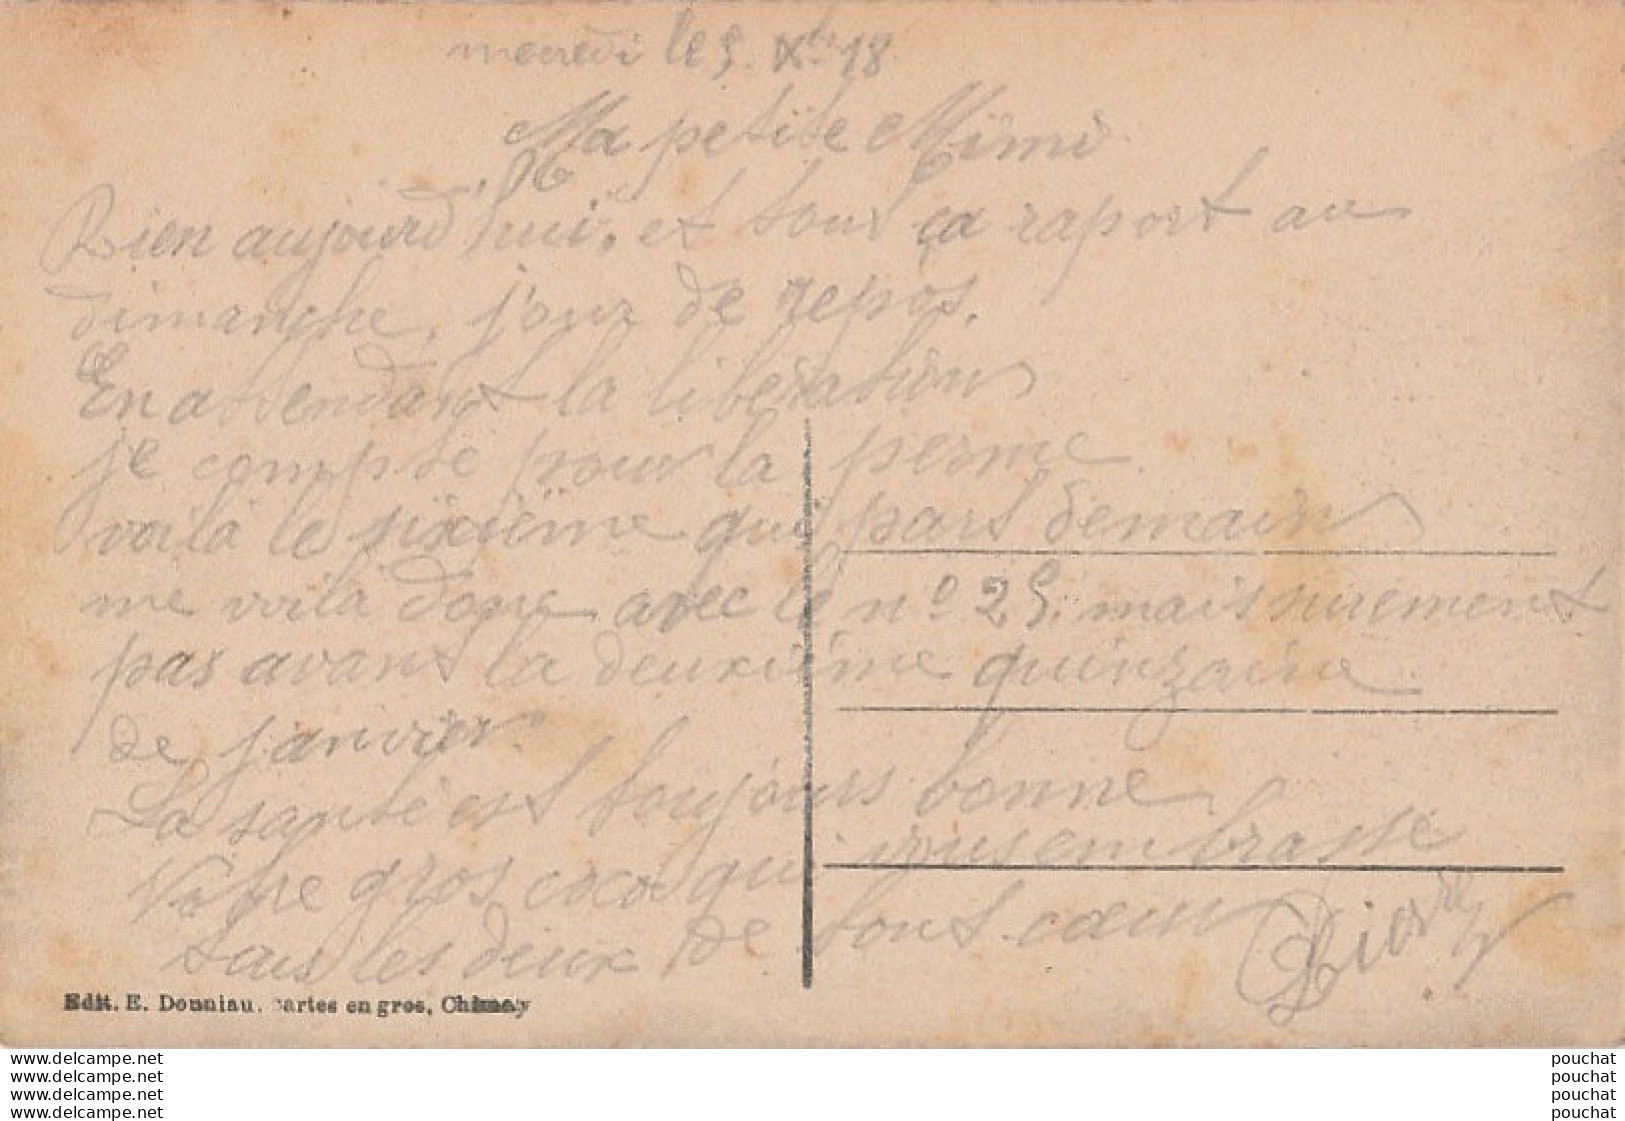 mercredi le 5. Xbre 18
Ma petite Mimi
Rien aujourd'hui, et tout ça raport au
dimanche, jour de repos.
En attendant la libération
je compte pour la perme
voilà le sixième qui part demain
me voilà donc avec le n° 25. mais surement
pas avant la deuxième quinzaine
de janvier.
La santé est toujours bonne
Votre gros coco qui vous embrasse
tous les deux de tout cœur Pierre
Edit. E. Donniau, cartes en gros, Chimay
www.delcampe.net
www.delcampe.net
www.delcampe.net
www.delcampe.net
pouchat
pouchat
pouchat
pouchat